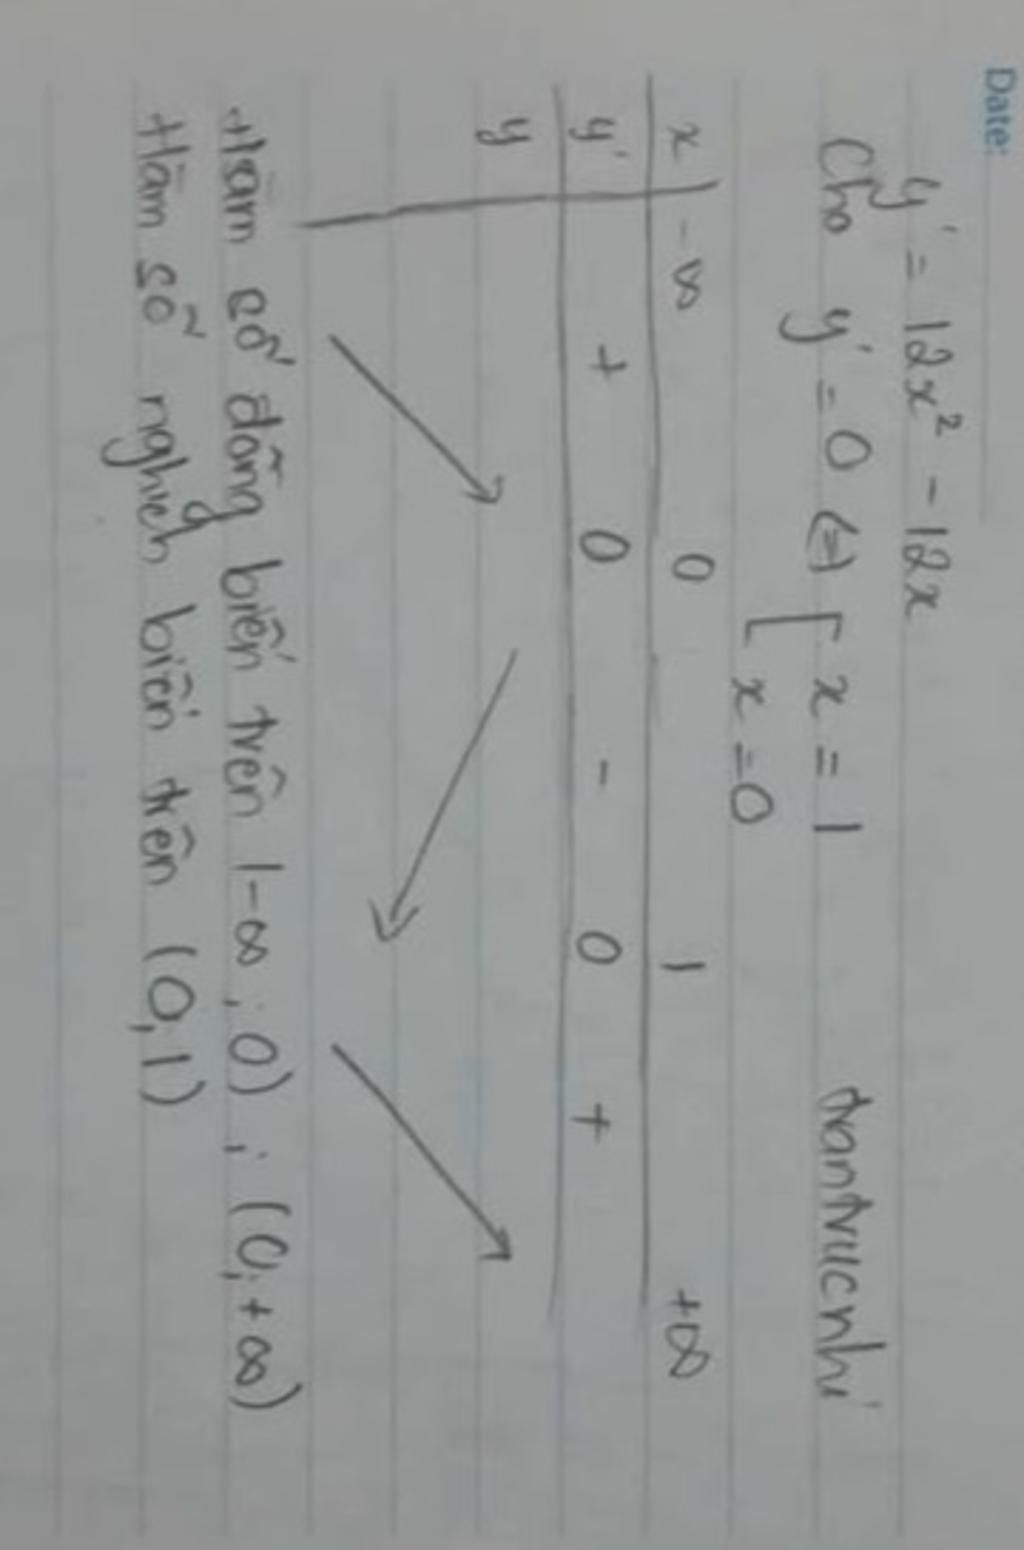 Date:
y' = 12x² - 12x
Cho y' = 0 ⇔ [ x = 1 trantrucnhi
x = 0
x -∞ 0 1 +∞
y' + 0 - 0 +
y
Hàm số đồng biến trên (-∞; 0); (0; +∞)
Hàm số nghịch biến trên (0; 1)